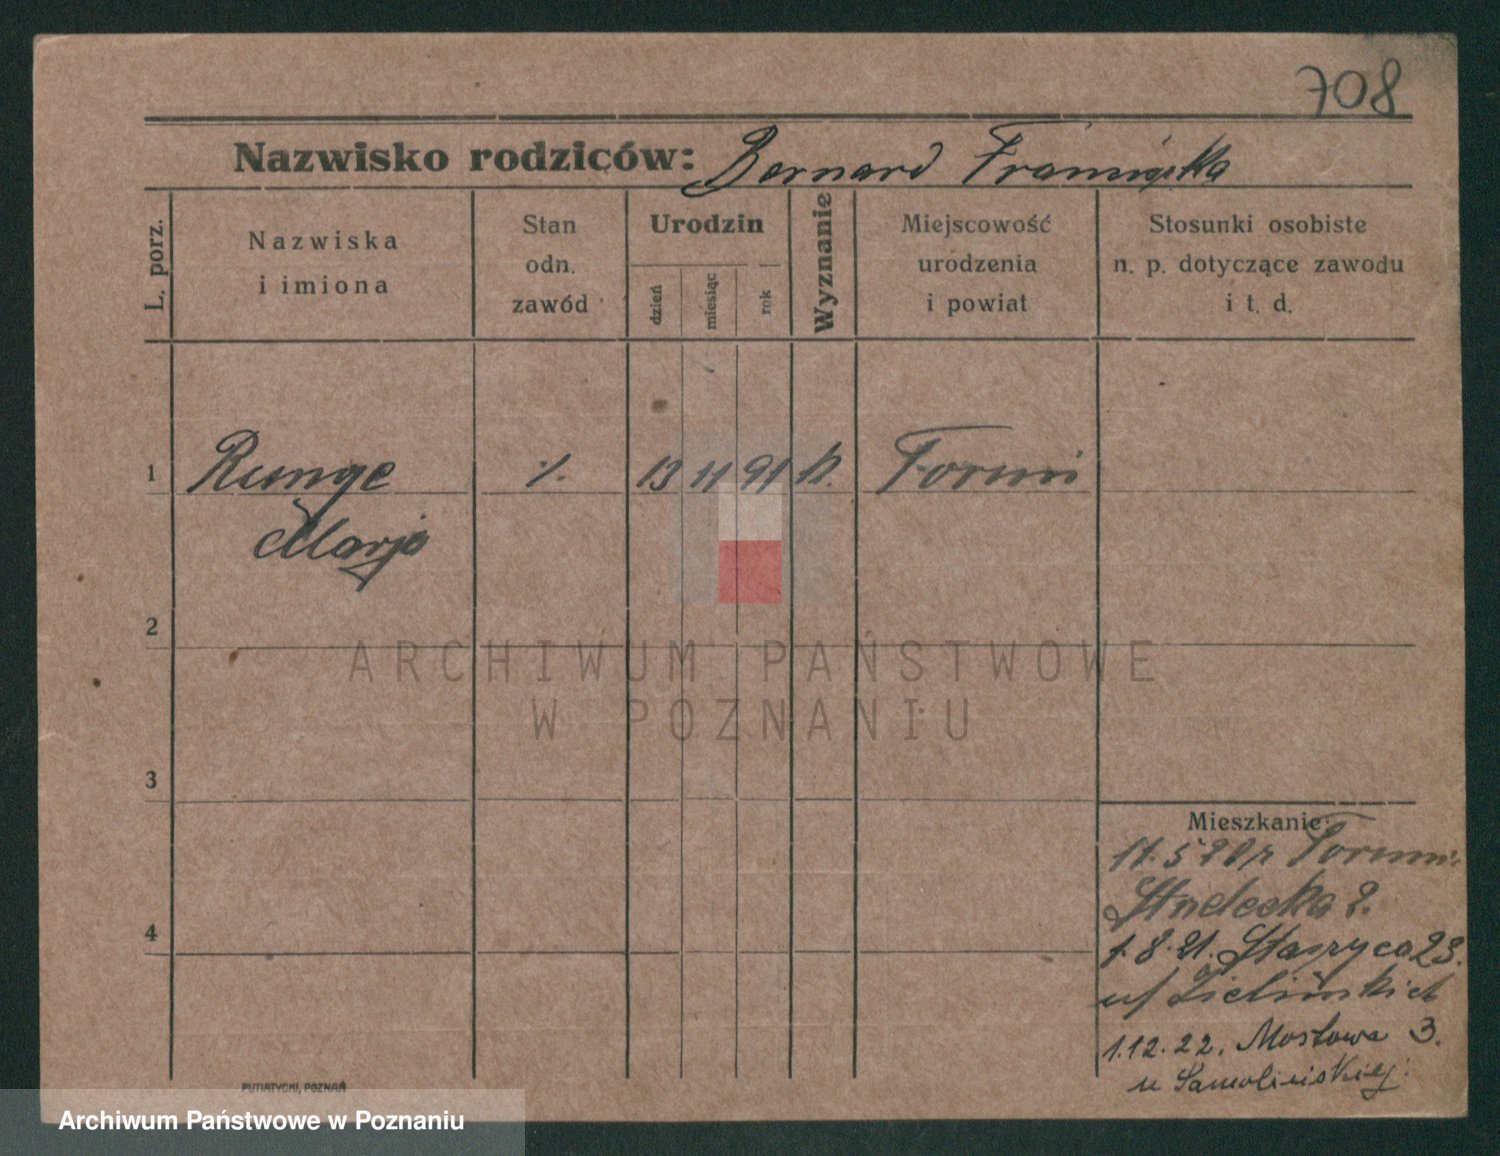 708
Nazwisko rodziców: Bernard Franciszka
L. porz.
Nazwiska
i imiona
Stan
odn.
zawód
Urodzin
dzień
miesiąc
rok
Wyznanie
Miejscowość
urodzenia
i powiat
Stosunki osobiste
n. p. dotyczące zawodu
i t. d.
1 Runge ·/. 13 11 91 k. Toruń
Marja
2
ARCHIWUM PAŃSTWOWE
W POZNANIU
3
Mieszkanie:
11.5 20 z Toruni
Strzelecka 2.
4
1.8.21. Staszyca 23.
u/ Zielińskich
1.12.22. Mostowa 3.
u Samolińskiej.
PUTIATYCKI, POZNAŃ
Archiwum Państwowe w Poznaniu